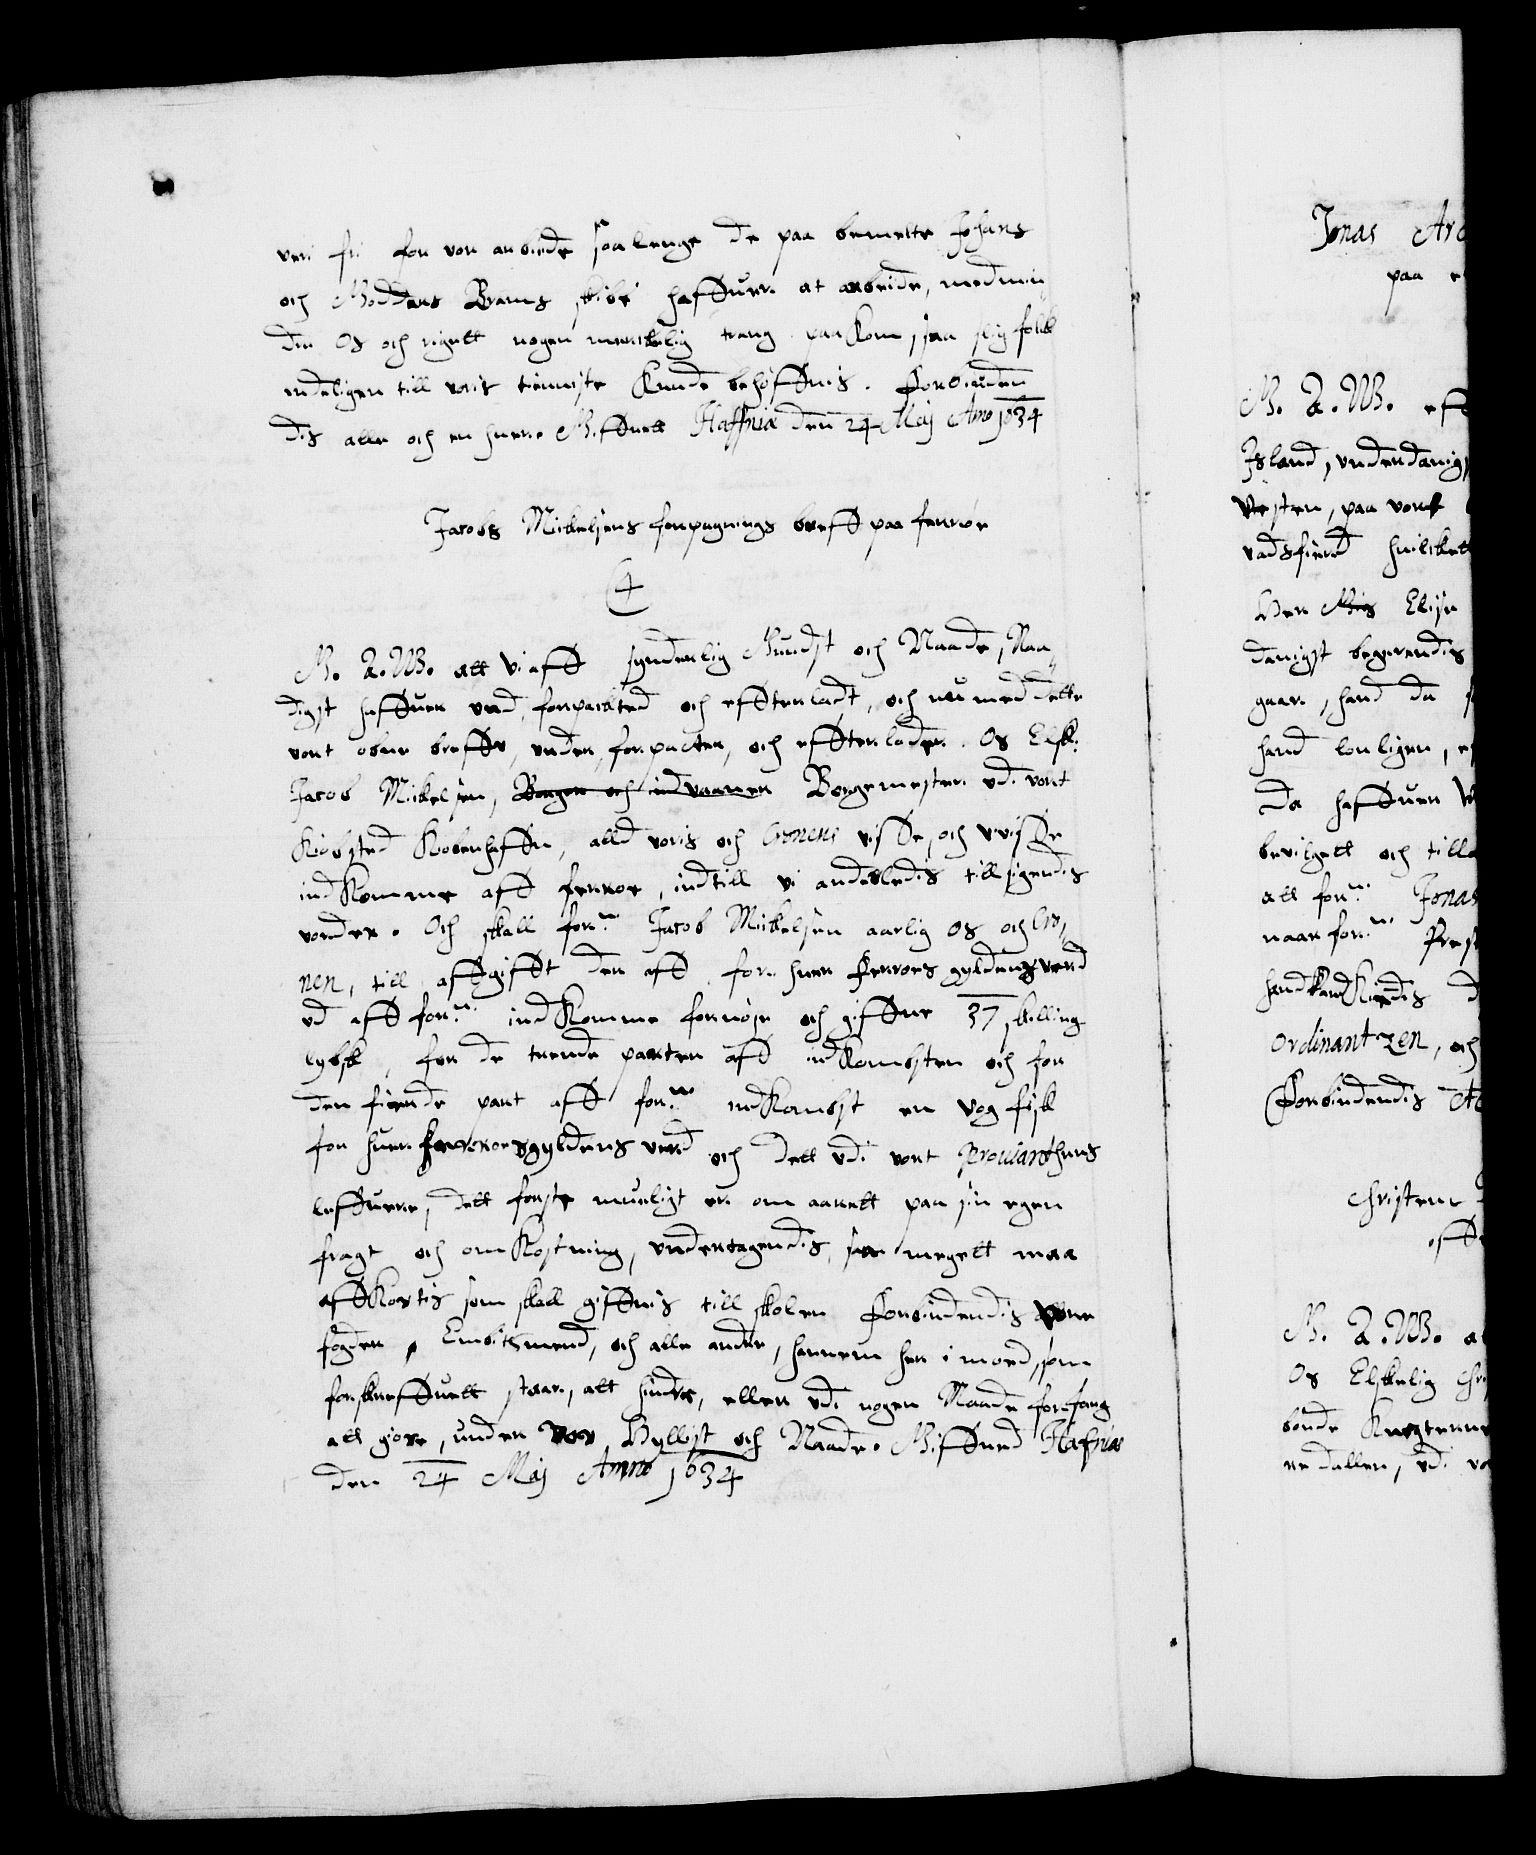 veri fri for vor arbeide saa lenge de paa bemelte Johans
och Godders Brams skibe haffuer at arbeide, medmin,
dre Os och rigett nogen merckelig trang paakom, saa slig folck
endeligen till voris tieniste kunde behøffuis. Forbiuden
dis alle och en huer. Giffuett Haffniæ den 24 Maij Anno 1634
Jacobs Mickelsens forpagnings breff paa Ferrøe
C4
G. A. W. att vi aff synderlig Gundst och Naade, Naa,
digst haffuer undt, forpackted och effterladt, och nu med dette
vort obne breffue, under, forpacter, och effterlader. Os Elsk:
Jacob Mickelsen, Borger och indvaaner Borgemester udi vort
Kiøbsted Kiøbenhaffn, alld voris och Cronens visse, och uvisse
indkomme aff Ferrøe, indtill vi anderledis tillsigendis
vorder. Och skall forne Jacob Mickelsen aarlig Os och Cro,
nen, till affgifft der aff for huer Ferrøes gyldens verd
ud aff forne indkomme fornøje och giffue 37 skilling
lybsk, for de trende parter aff indkombsten och for
den fierde part aff forne indkombst en vog fisk
for huer Ferrøersgyldens verd och dett udi vort Prouianthuus
leffuere, dett første mueligt er om aarett paa sin egen
fragt och omkostning, undertagendis, saa megett maa
affkortis som skall giffuis till skolen Forbiudendis vore
fogder, Embitzmend, och alle andre, hannem her i mod, som
forskreffuett staar, att hindre, eller udi nogen Maade forfang
att giøre, under vor Hyllist och Naade. Giffued Hafniæ
den 24 Maij Anno 1634
Jonas Ar
paa
G. A. W. eff
Island, underdanig
Vesten, paa vort
vadsfierd huilckett
Her Elise
danigst begerendis
gaar, hand da
hand louligen,
Da haffuer
bevilgett och tilla
att forne Jonas
naar forne Prest
hand
Ordinantzen, och
Forbiudendis A
Christen
G. A. W. a
Os Elskelig Chri
bønde
udi vo